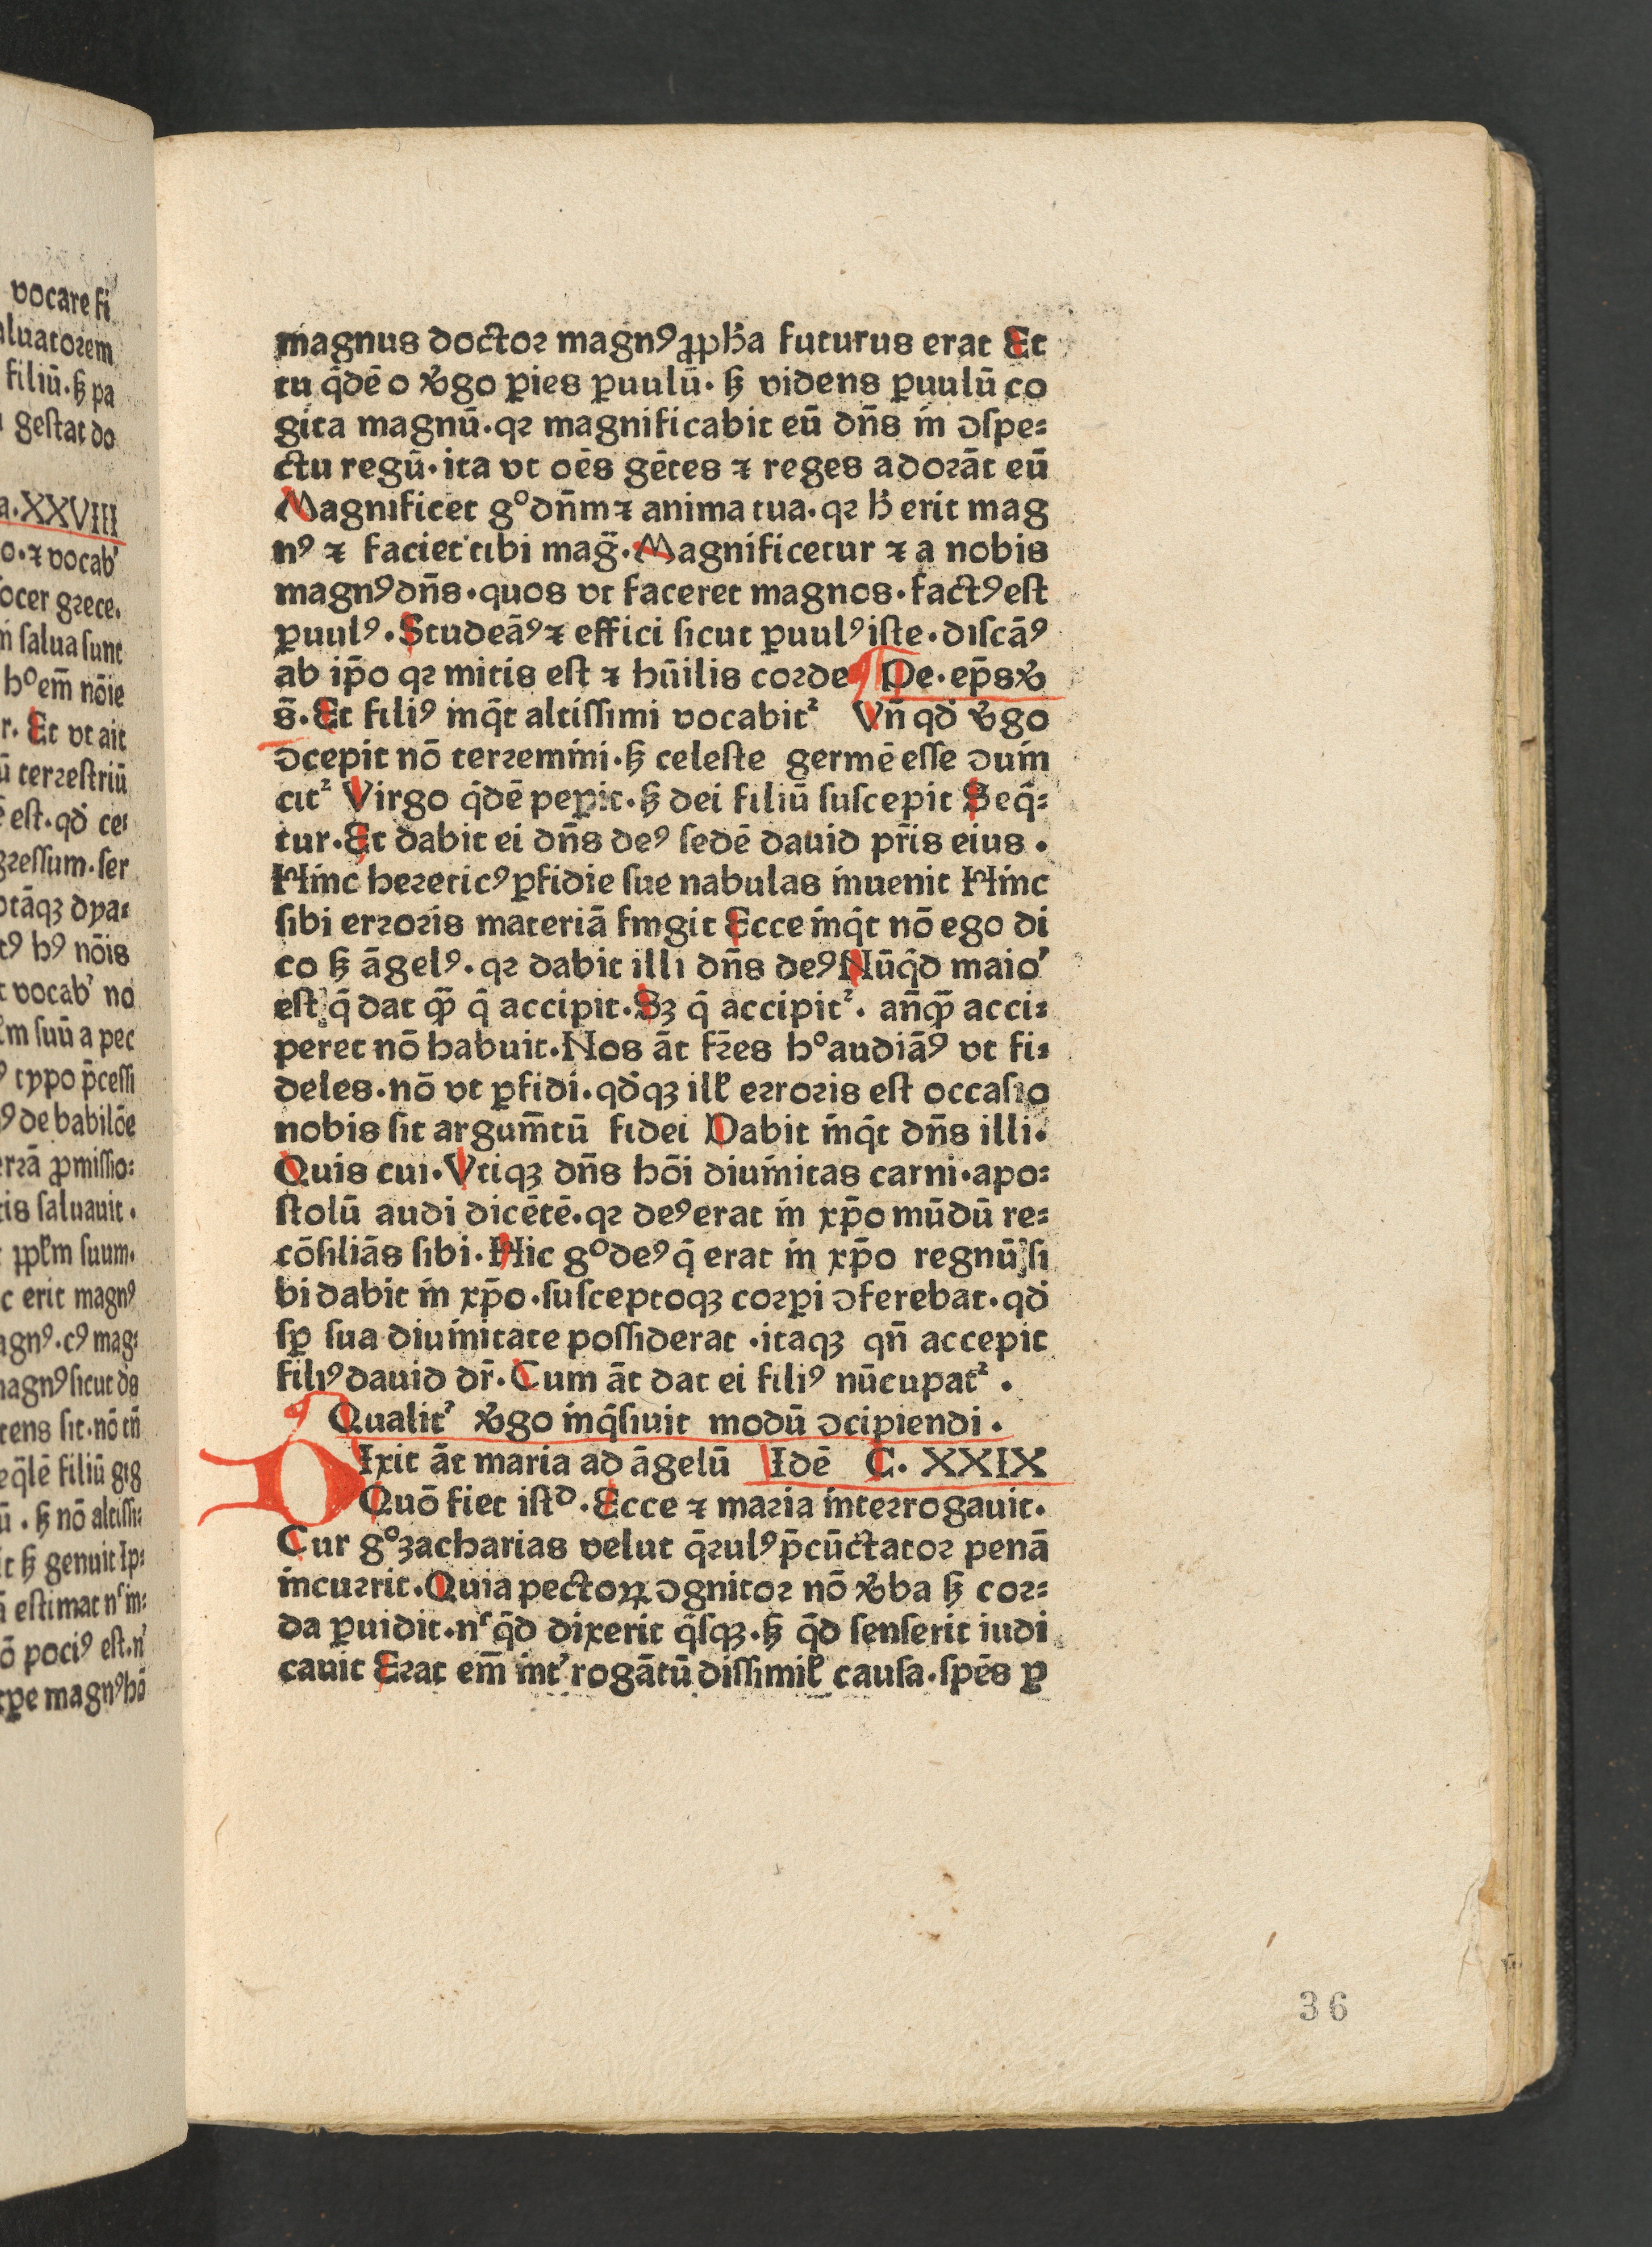 vocare fi
aluatorem
filiū·ꜩ pa
geſtat do
a·XXVIII
o·⁊ vocabꝰ
ocer grece.
ſalua ſunt
hoem̄ nōie
r. Et vt ait
ū terreſtriū
eſt·qđ ce⸗
greſſum·ſer
otāqꝫ dya⸗
tꝰ hꝰ nōis
vocab' no
m ſuū a pec
typo p̄ceſſi
ꝰ de babilōe
errā ꝓmiſſio⸗
tis ſaluauit·
ppl'm ſuum·
c erit magnꝰ
agnꝰ·cꝰ mag⸗
magnꝰ ſicut ds
tens ſit·nō tn̄
eq̄lē filiū gig
ū·ꜩ nō altiſſi⸗
t ꜩ genuit Ip⸗
eſtimat n' im⸗
ō pociꝰ eſt·n'
ꝑe magnꝰ hō
magnus doctoꝛ magnꝰ ꝓpħa futurus erat Et
tu q̄dē o v̾go ꝑies ꝑuulū· ꜩ videns ꝑuulū co
gita magnū·qꝛ magnificabit eū dn̄s in ↄſpe⸗
ctu regū·ita vt oēs gētes ⁊ reges adoꝛāt eū
Magnificet g° dn̄m ⁊ anima tua·qꝛ ħ erit mag
nꝰ ⁊ faciet tibi mag̈·Magnificetur ⁊ a nobis
magnꝰ dn̄s·quos vt faceret magnos·factꝰ eſt
ꝑuulꝰ·Studeāꝰ ⁊ effici ſicut ꝑuulꝰ iſte·diſcāꝰ
ab ip̄o qꝛ mitis eſt ⁊ hūilis coꝛde ¶ De·ep̄s v̾
s̄·Et filiꝰ inq̄t altiſſimi vocabitᷣ Vn̄ qđ v̾go
ↄcepit nō terremini·ꜩ celeſte germē eſſe ↄuin
citᷣ Virgo q̄dē peꝑit·ꜩ dei filiū ſuſcepit Seq̄⸗
tur·Et dabit ei dn̄s deꝰ ſedē dauid pr̄is eius·
Hinc hereticꝰ ꝑfidie ſue nabulas inuenit Hinc
ſibi erroꝛis materiā fingit Ecce inq̄t nō ego di
co ꜩ āgelꝰ·qꝛ dabit illi dn̄s deꝰ Nūq̄d maio'
eſt q̄ dat qꝫ̄ q̄ accipit·Sꝫ q̄ accipitᷣ· an̄qꝫ̄ acci⸗
peret nō habuit·Nos āt fr̄es h° audiāꝰ vt fi⸗
deles·nō vt ꝑfidi·qđqꝫ ill' erroꝛis eſt occaſio
nobis ſit argum̄tū fidei Dabit inq̄t dn̄s illi·
Quis cui·Vtiqꝫ dn̄s hōi diuinitas carni·apo⸗
ſtolū audi dicētē·qꝛ deꝰ erat in xp̄o mūdū re⸗
cōſiliās ſibi·Hic g° deꝰ q̄ erat in xp̄o regnū ſi
bi dabit in xp̄o·ſuſceptoqꝫ coꝛꝑi ↄferebat·qđ
ſꝑ ſua diuinitate poſſiderat·itaqꝫ qn̄ accepit
filiꝰ dauid dr̄·Cum āt dat ei filiꝰ nūcupatᷣ·
¶ Qualit' v̾go inq̄ſiuit modū ↄcipiendi·
DIxit āt maria ad āgelū Idē C· XXIX
Quō fiet iſtᵈ·Ecce ⁊ maria interrogauit·
Cur g° zacharias velut q̄rulꝰ p̄cūctatoꝛ penā
incurrit·Quia pectoꝝ ↄgnitoꝛ nō v̾ba ꜩ coꝛ⸗
da ꝑuidit·n' q̄d dixerit q̄ſqꝫ·ꜩ q̄d ſenſerit iudi
cauit Erat em̄ int'rogātū diſſimil' cauſa·ſpēs ꝑ
36